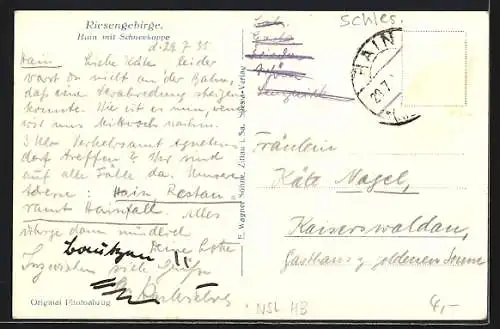 Riesengebirge.
Hain mit Schneekoppe
d. 29.7.35
Hain. Liebe Käte, leider
warst Du nicht an der Bahn,
daß eine Verabredung steigen
konnte. Wie ist es nun, wenn
wir uns Mittwoch nachm.
3 Uhr Verkehrsamt Agneten-
dorf treffen? Wir sind
auf alle Fälle da. Unsere
Adresse: Hain, Restau-
rant Hainfall. Alles
übrige dann mündlich
Inzwischen viele Grüße
Deine
Bautzen !!
Original Photoabzug
E. Wagner Söhne, Zittau i. Sa.
Schles.
HAIN
29.7.
Fräulein
Käte Nagel,
Kaiserswaldau,
Gasthaus z. goldenen Sonne
NSL HB
4,-